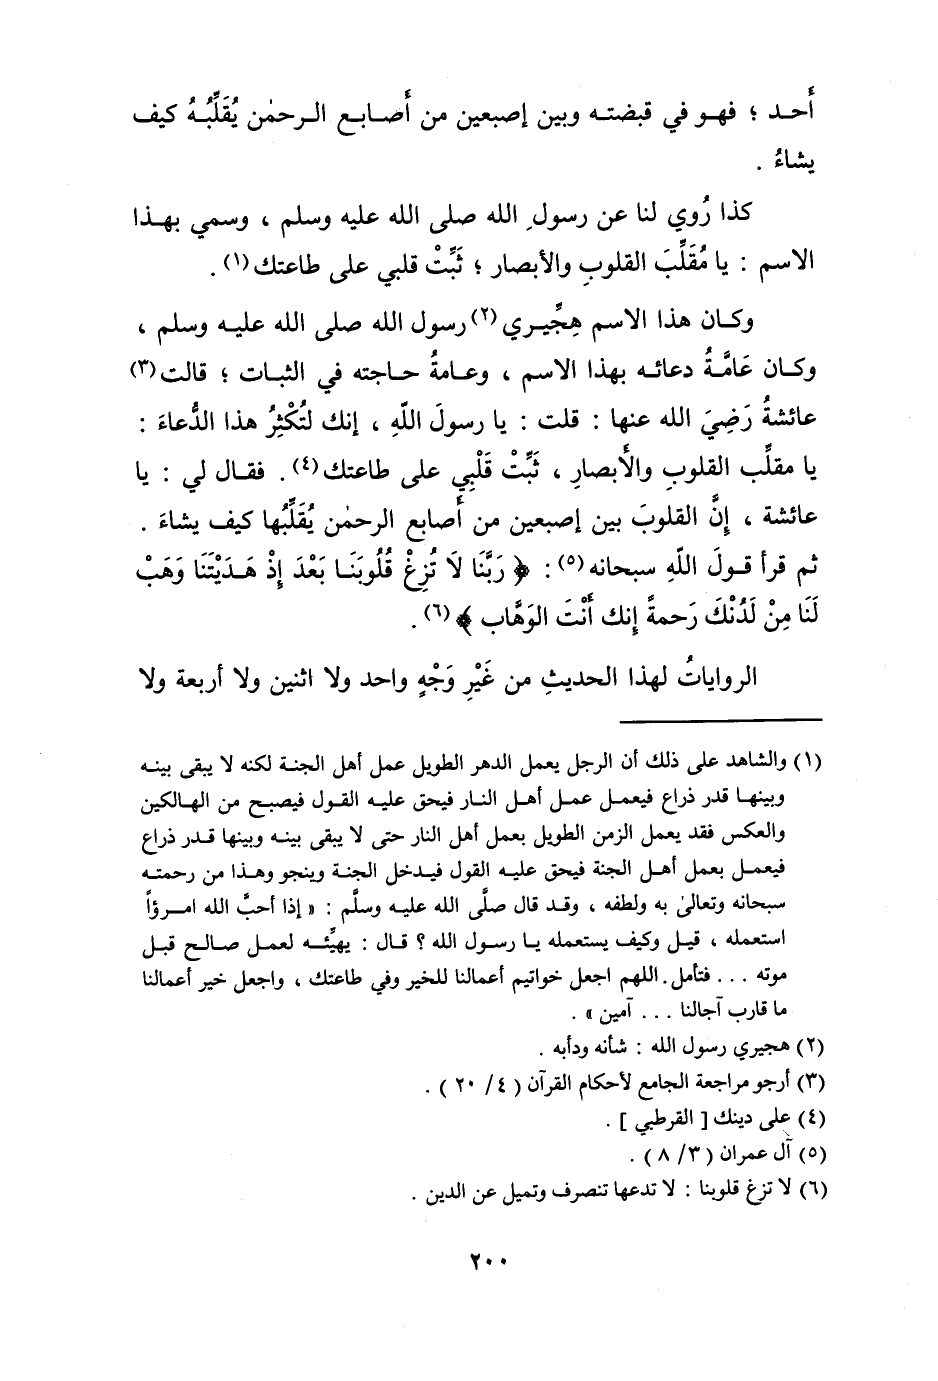 أَحـد ؛ فهـو في قبضتـه وبين إصبعين من أَصـابـع الـرحمٰن يُقَلِّبُـهُ كيف
يشاءُ .
كذا رُوي لنا عن رسولِ الله صلى الله عليه وسلم ، وسمي بهـذا
الاسم : يا مُقَلِّبَ القلوبِ والأبصار ؛ ثَبِّتْ قلبي على طاعتك (١) .
وكـان هذا الاسم هِجِّيـري (٢) رسول الله صلى الله عليـه وسلم ،
وكـان عَامَّةُ دعائـه بهـذا الاسم ، وعـامةُ حـاجته في الثبات ؛ قالت (٣)
عائشةُ رَضِيَ الله عنها : قلت : يا رسولَ اللّهِ ، إنك لتُكْثِرُ هذا الدُّعاءَ :
يا مقلِّب القلوبِ والأَبصارِ ، ثَبِّتْ قَلْبِي على طاعتك (٤) . فقـال لي : يا
عائشة ، إِنَّ القلوبَ بين إصبعين من أَصابع الرحمٰن يُقَلِّبُها كيف يشاءَ .
ثم قرأ قـولَ اللّهِ سبحانه (٥) : ﴿ رَبَّنَا لَا تُزِغْ قُلُوبَنَـا بَعْدَ إِذْ هَـدَيْتَنَا وَهَبْ
لَنَا مِنْ لَدُنْكَ رَحمةً إِنك أَنْتَ الوَهَّاب ﴾ (٦) .
الرواياتُ لهذا الحديثِ من غَيْرِ وَجْهٍ واحد ولا اثنين ولا أربعة ولا
(١) والشاهد على ذلك أن الرجل يعمل الدهر الطويل عمل أهل الجنـة لكنه لا يبقى بينـه
وبينهـا قدر ذراع فيعمـل عمـل أهـل النـار فيحق عليـه القول فيصبـح من الهـالكين
والعكس فقد يعمل الزمن الطويل بعمل أهل النار حتى لا يبقى بينـه وبينها قـدر ذراع
فيعمـل بعمل أهـل الجنة فيحق عليـه القول فيـدخل الجنـة وينجو وهـذا من رحمتـه
سبحانه وتعالىٰ به ولطفه ، وقـد قال صلَّى الله عليـه وسلَّم : « إذا أحبَّ الله امـرؤاً
استعمله ، قيـل وكيف يستعمله يـا رسول الله ؟ قـال : يهيِّئـه لعمـل صـالـح قبـل
موته . . . فتأمل . اللهم اجعل خواتيم أعمالنا للخير وفي طاعتك ، واجعل خير أعمالنا
ما قارب آجالنا . . . آمين » .
(٢) هجيري رسول الله : شأنه ودأبه .
(٣) أرجو مراجعة الجامع لأحكام القرآن ( ٤/ ٢٠ ) .
(٤) على دينك [ القرطبي ] .
(٥) آل عمران ( ٣/ ٨ ) .
(٦) لا تزغ قلوبنا : لا تدعها تنصرف وتميل عن الدين .
٢٠٠